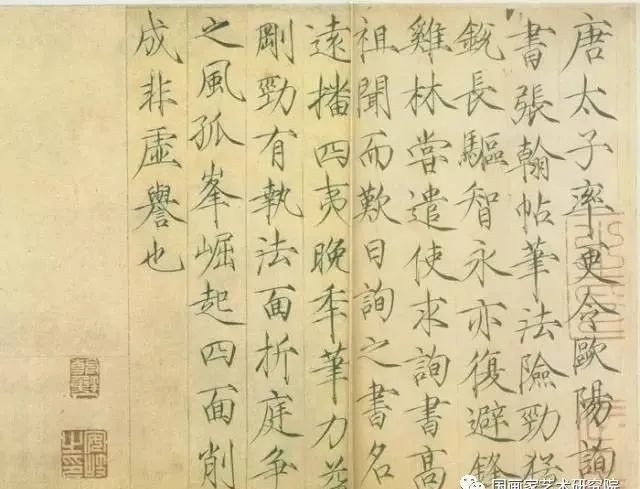 唐太子率更令歐陽詢
書張翰帖筆法險勁猛
銳長驅智永亦復避鋒
雞林嘗遣使求詢書高
祖聞而歎曰詢之書名
遠播四夷晚年筆力益
剛勁有執法面折庭爭
之風孤峯崛起四面削
成非虛譽也
国画家艺术研究院